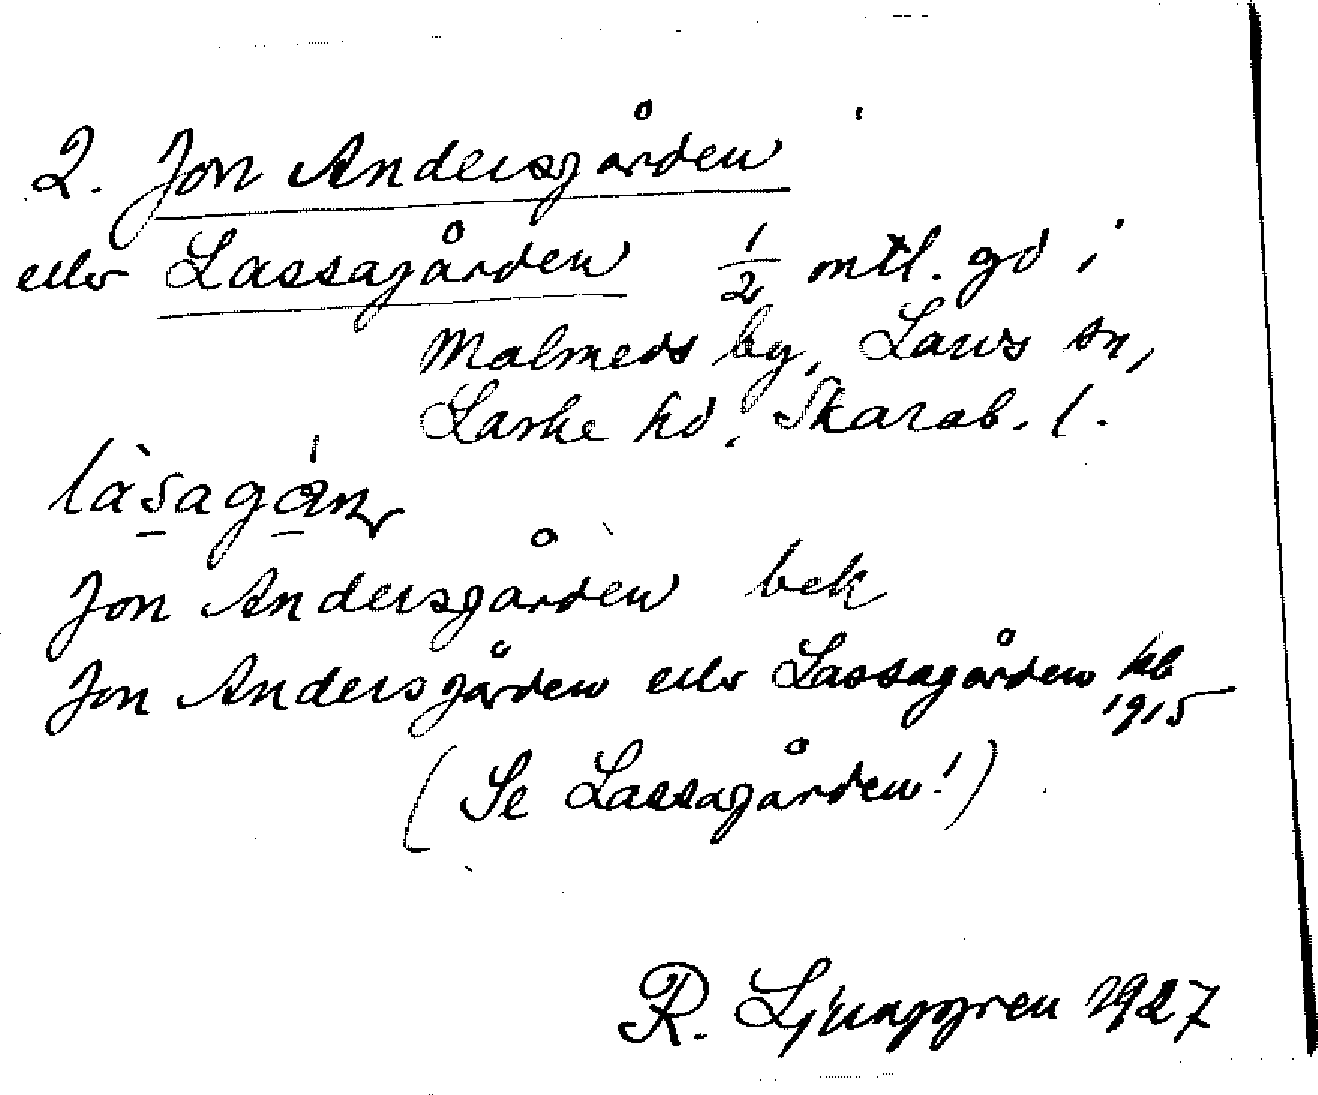 2. Jon Andersgården
eller Lassagården 1/2 mtl. gd i
Malmeds by, Laws sn,
Laske hd, Skarab. l.
làsagán
Jon Andersgården bek
Jon Andersgården eller Lassagården kb
1915
(Se Lassagården!)
R. Ljunggren 1927